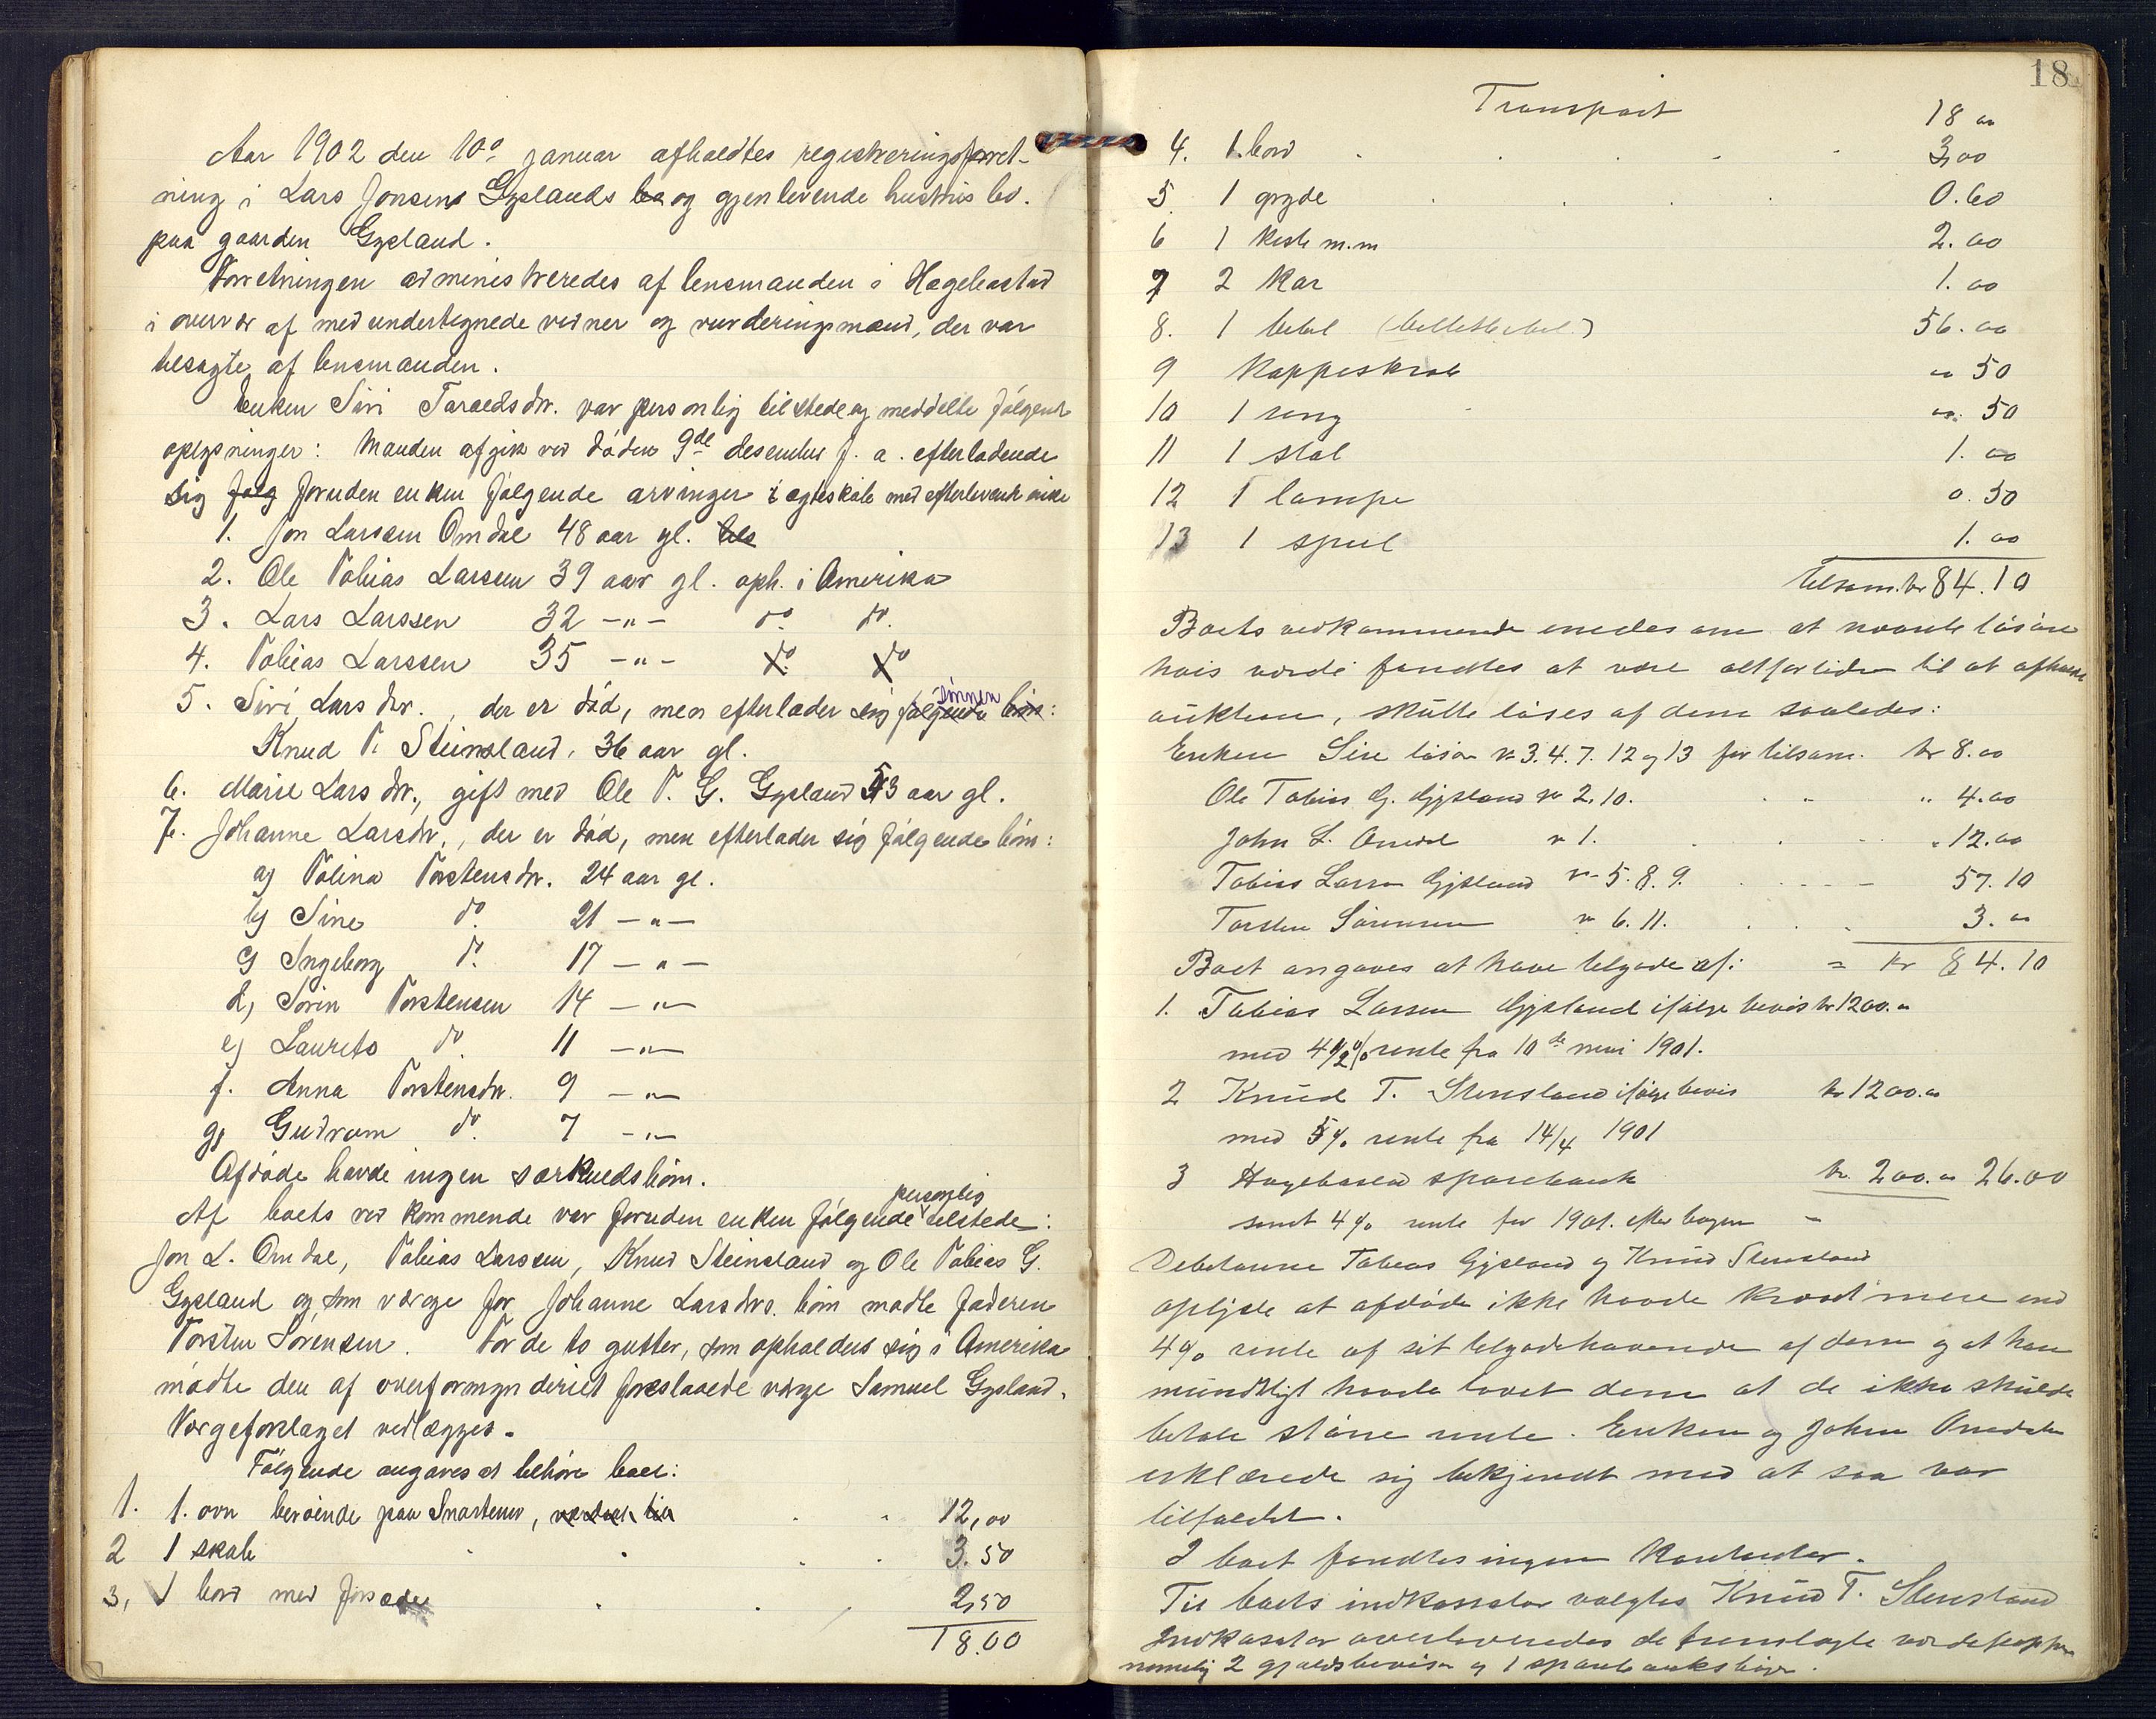 Aar 1902 den 10de januar afholdtes registreringsforret-
ning i Lars Jonsens Gyslands bo og gjenlevende hustrus bo.
paa gaarden Gysland.
Forretningen administreredes af lensmanden i Hægebostad
i overvær af medundertegnede vidner og vurderingsmænd, der var
tilsagte af lensmanden.
Enken Siri Taraldsdr. var personlig tilstede og meddelte følgende
oplysninger: Manden afgik ved døden 9de desember f. a. efterladende
sig følg foruden enken følgende arvinger i ægteskab med efterlevende enke
1. Jon Larssen Omdal 48 aar gl.
2. Ole Tobias Larssen 39 aar gl. oph. i Amerika
3. Lars Larssen 32 -"- do. do.
4. Tobias Larssen 35 -"- do. do
5. Siri Larsdr., der er død, men efterlader sig følgende sønnen børn:
Knud T. Steinsland, 36 aar gl.
6. Marie Larsdr., gift med Ole T. G. Gysland 53 aar gl.
7. Johanne Larsdr., der er død, men efterlader sig følgende børn:
a) Tolina Torstensdr. 24 aar gl.
b) Sine do. 21 -"-
c) Ingeborg do. 17 -"-
d) Sørin Torstensen 14 -"-
e) Laurits do. 11 -"-
f. Anna Torstensdr. 9 -"-
g) Gudrom do. 7 -"-
Afdøde havde ingen særkuldsbørn.
Af boets vedkommende var foruden enken følgende personlig tilstede:
Jon L. Omdal, Tobias Larssen, Knud Steinsland og Ole Tobias G.
Gysland og som værge for Johanne Larsdrs. børn mødte faderen
Torsten Sørensen. For de to gutter, som opholder sig i Amerika
mødte den af overformynderiet foreslaaede værge Samuel Gysland.
Værgeforslaget vedlægges.
Følgende angaves at tilhøre boet:
1. 1. ovn beroende paa Snartemo, værdsat til 12,00
2 1 skab 3.50
3, 1 bord med forsæde 2,50
18.00
18
Transport 18 00
4. 1 bord 3,00
5. 1 gryde 0.60
6 1 kiste m.m 2.00
7 2 kar 1.00
8. 1 bibel (billetbibel) 56.00
9 Kappeskrab 00 50
10 1 seng 00. 50
11 1 stol 1.00
12 1 lampe 0.50
13 1 speil 1.00
tilsam. kr 84.10
Boets vedkommende enedes om at nævnte løsøre
hvis værdi fandtes at være altfor liden til at afholde
auktion, skulle løses af dem saaledes:
Enken Sire løser No 3. 4. 7. 12 og 13 for tilsam. kr 8.00
Ole Tobias G. Gysland No 2. 10. " 4.00
John L. Omdal No 1. " 12.00
Tobias Larsen Gysland No 5. 8. 9. 57.10
Torsten Sørensen No 6. 11. 3.00
Boet angaves at have tilgode af: = kr 84.10
1. Tobias Larssen Gysland ifølge bevis kr 1200.00
med 4 1/2 % rente fra 10de mai 1901.
2 Knud T. Stensland ifølge bevis kr 1200.00
med 5% rente fra 14/4 1901
3 Hægebostad sparebank kr. 200.00 26.00
samt 4% rente for 1901. efter bogen
Debitorerne Tobias Gysland og Knud Stensland
oplyste at afdøde ikke havde krævet mere end
4% rente af sit tilgodehavende af dem og at han
mundtligt havde lovet dem at de ikke skulde
betale større rente. Enken og John Omdal
erklærede sig bekjendt med at saa var
tilfældet.
I boet fandtes ingen kontanter.
Til boets indkassator valgtes Knud T. Stensland
Indkassator overleveredes de fremlagte værdipapirer
nemlig 2 gjældsbeviser og 1 sparebanksbog.